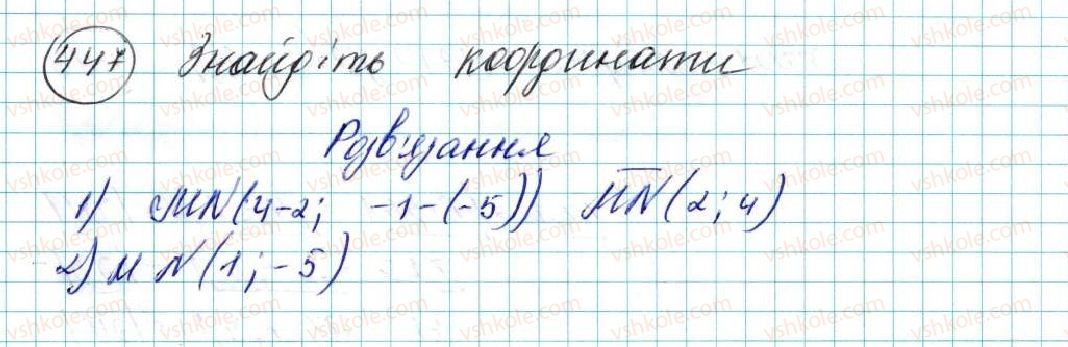 447 Знайдіть координати
Розв'язання
1) MN(4-2; -1-(-5)) MN(2; 4)
2) M N(1; -5)